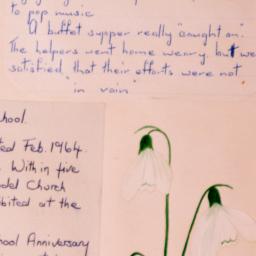 to pop music
A buffet supper really "caught on".
The helpers went home weary. but we
satisfied that their efforts were not
"in vain"
hool.
ted Feb. 1964.
. Within five
odel Church
bited at the
hool Anniversary